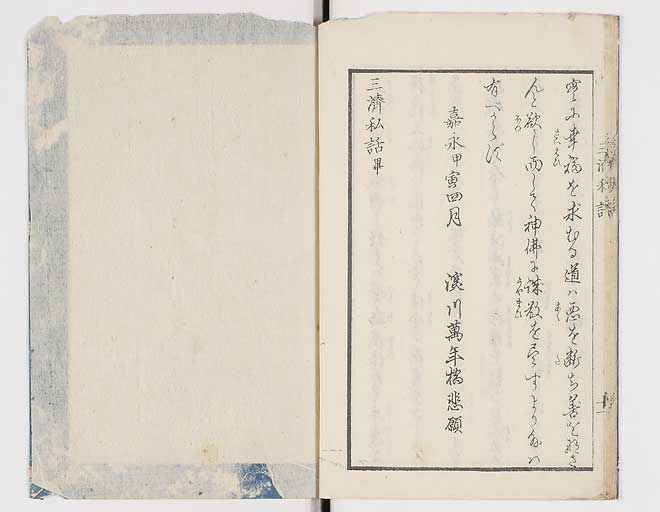 実に幸福を求むる道ハ悪を断ち善をなさ
んと欲し而して神佛に誠敬を尽すより外ハ
有べからず
嘉永甲寅四月
深川萬年橋悲願
三濟私話畢
三濟私話